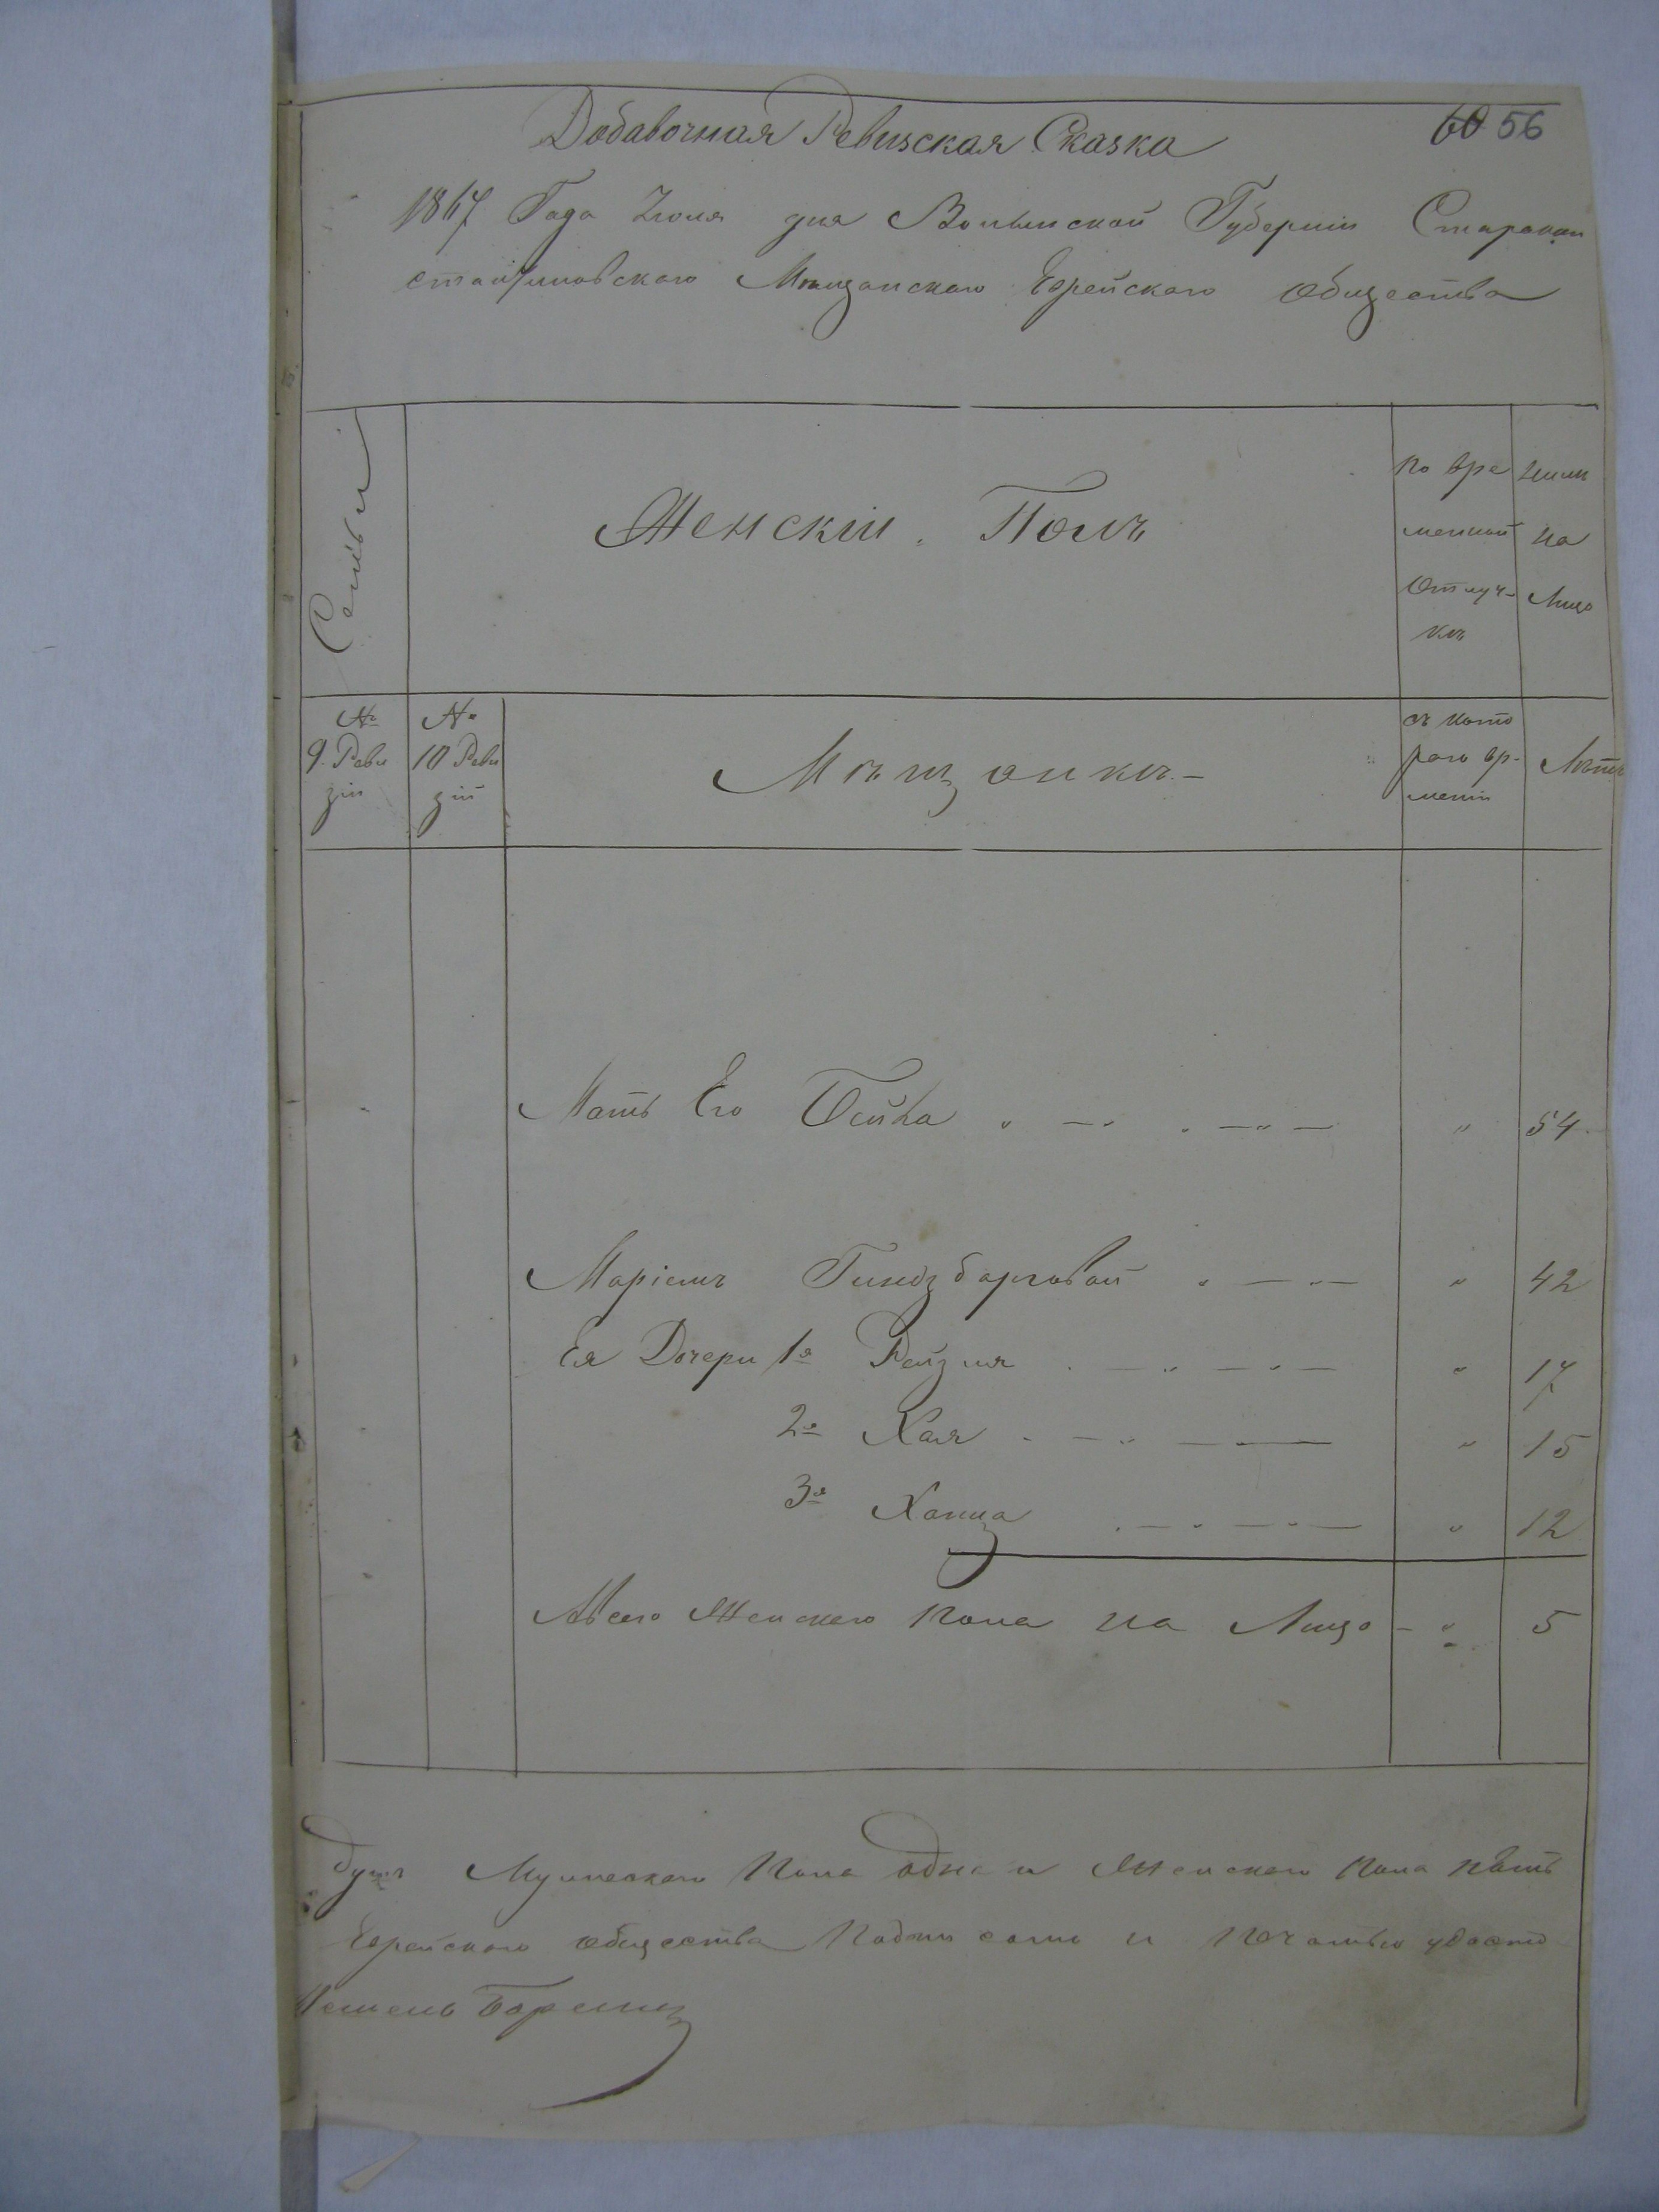 Добавочная Ревизская Сказка
60 56
1867 Года Июля дня Волынской Губерніи Старокон
стантиновского Мѣщанского Еврейского Общества
Семьи
Женскій Полъ
По вре
менной
Отлуч-
кѣ
Ныни
на
Лицо
№
9 Реви
зіи
№
10 Реви
зій
Мѣщанкѣ -
съ кото
рого вр-
мени
Лѣтъ
Мать Его 54
Маріемъ Гиндзбарговой " 42
Ея Дочери 1я Рейзля " 17
2я Хая " 15
3я Ханца " 12
Всего Женского Пола на Лицо - " 5
душъ Мужеского Пола одна и Женского Пола пять
Еврейского общества Подписомъ и Печатью удосто